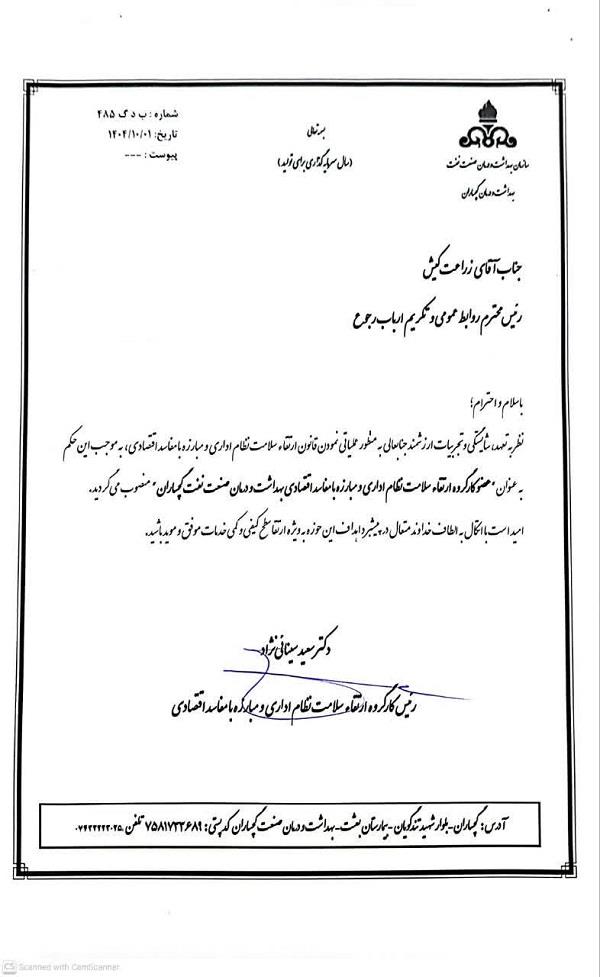 شماره: ب د گ ۴۸۵
تاریخ: ۱۴۰۴/۱۰/۰۱
پیوست: ---
بسمه تعالی
(سال سرمایه گذاری برای تولید)
سازمان بهداشت و درمان صنعت نفت
بهداشت و درمان گچساران
جناب آقای زراعت کیش
رئیس محترم روابط عمومی و تکریم ارباب رجوع
با سلام و احترام؛
نظر به تعهد، شایستگی و تجربیات ارزشمند جنابعالی به منظور عملیاتی نمودن قانون ارتقاء سلامت نظام اداری و مبارزه با مفاسد اقتصادی، به موجب این حکم
به عنوان "عضو کارگروه ارتقاء سلامت نظام اداری و مبارزه با مفاسد اقتصادی بهداشت و درمان صنعت نفت گچساران" منصوب می گردید.
امید است با اتکال به الطاف خداوند متعال در پیشبرد اهداف این حوزه به ویژه ارتقا سطح کیفی و کمی خدمات موفق و موید باشید.
دکتر سعید سینائی نژاد
رئیس کارگروه ارتقاء سلامت نظام اداری و مبارزه با مفاسد اقتصادی
آدرس: گچساران-بلوار شهید تندگویان-بیمارستان بعثت-بهداشت و درمان صنعت گچساران کد پستی: ۷۵۸۱۷۳۳۶۸۹ تلفن
CS Scanned with CamScanner